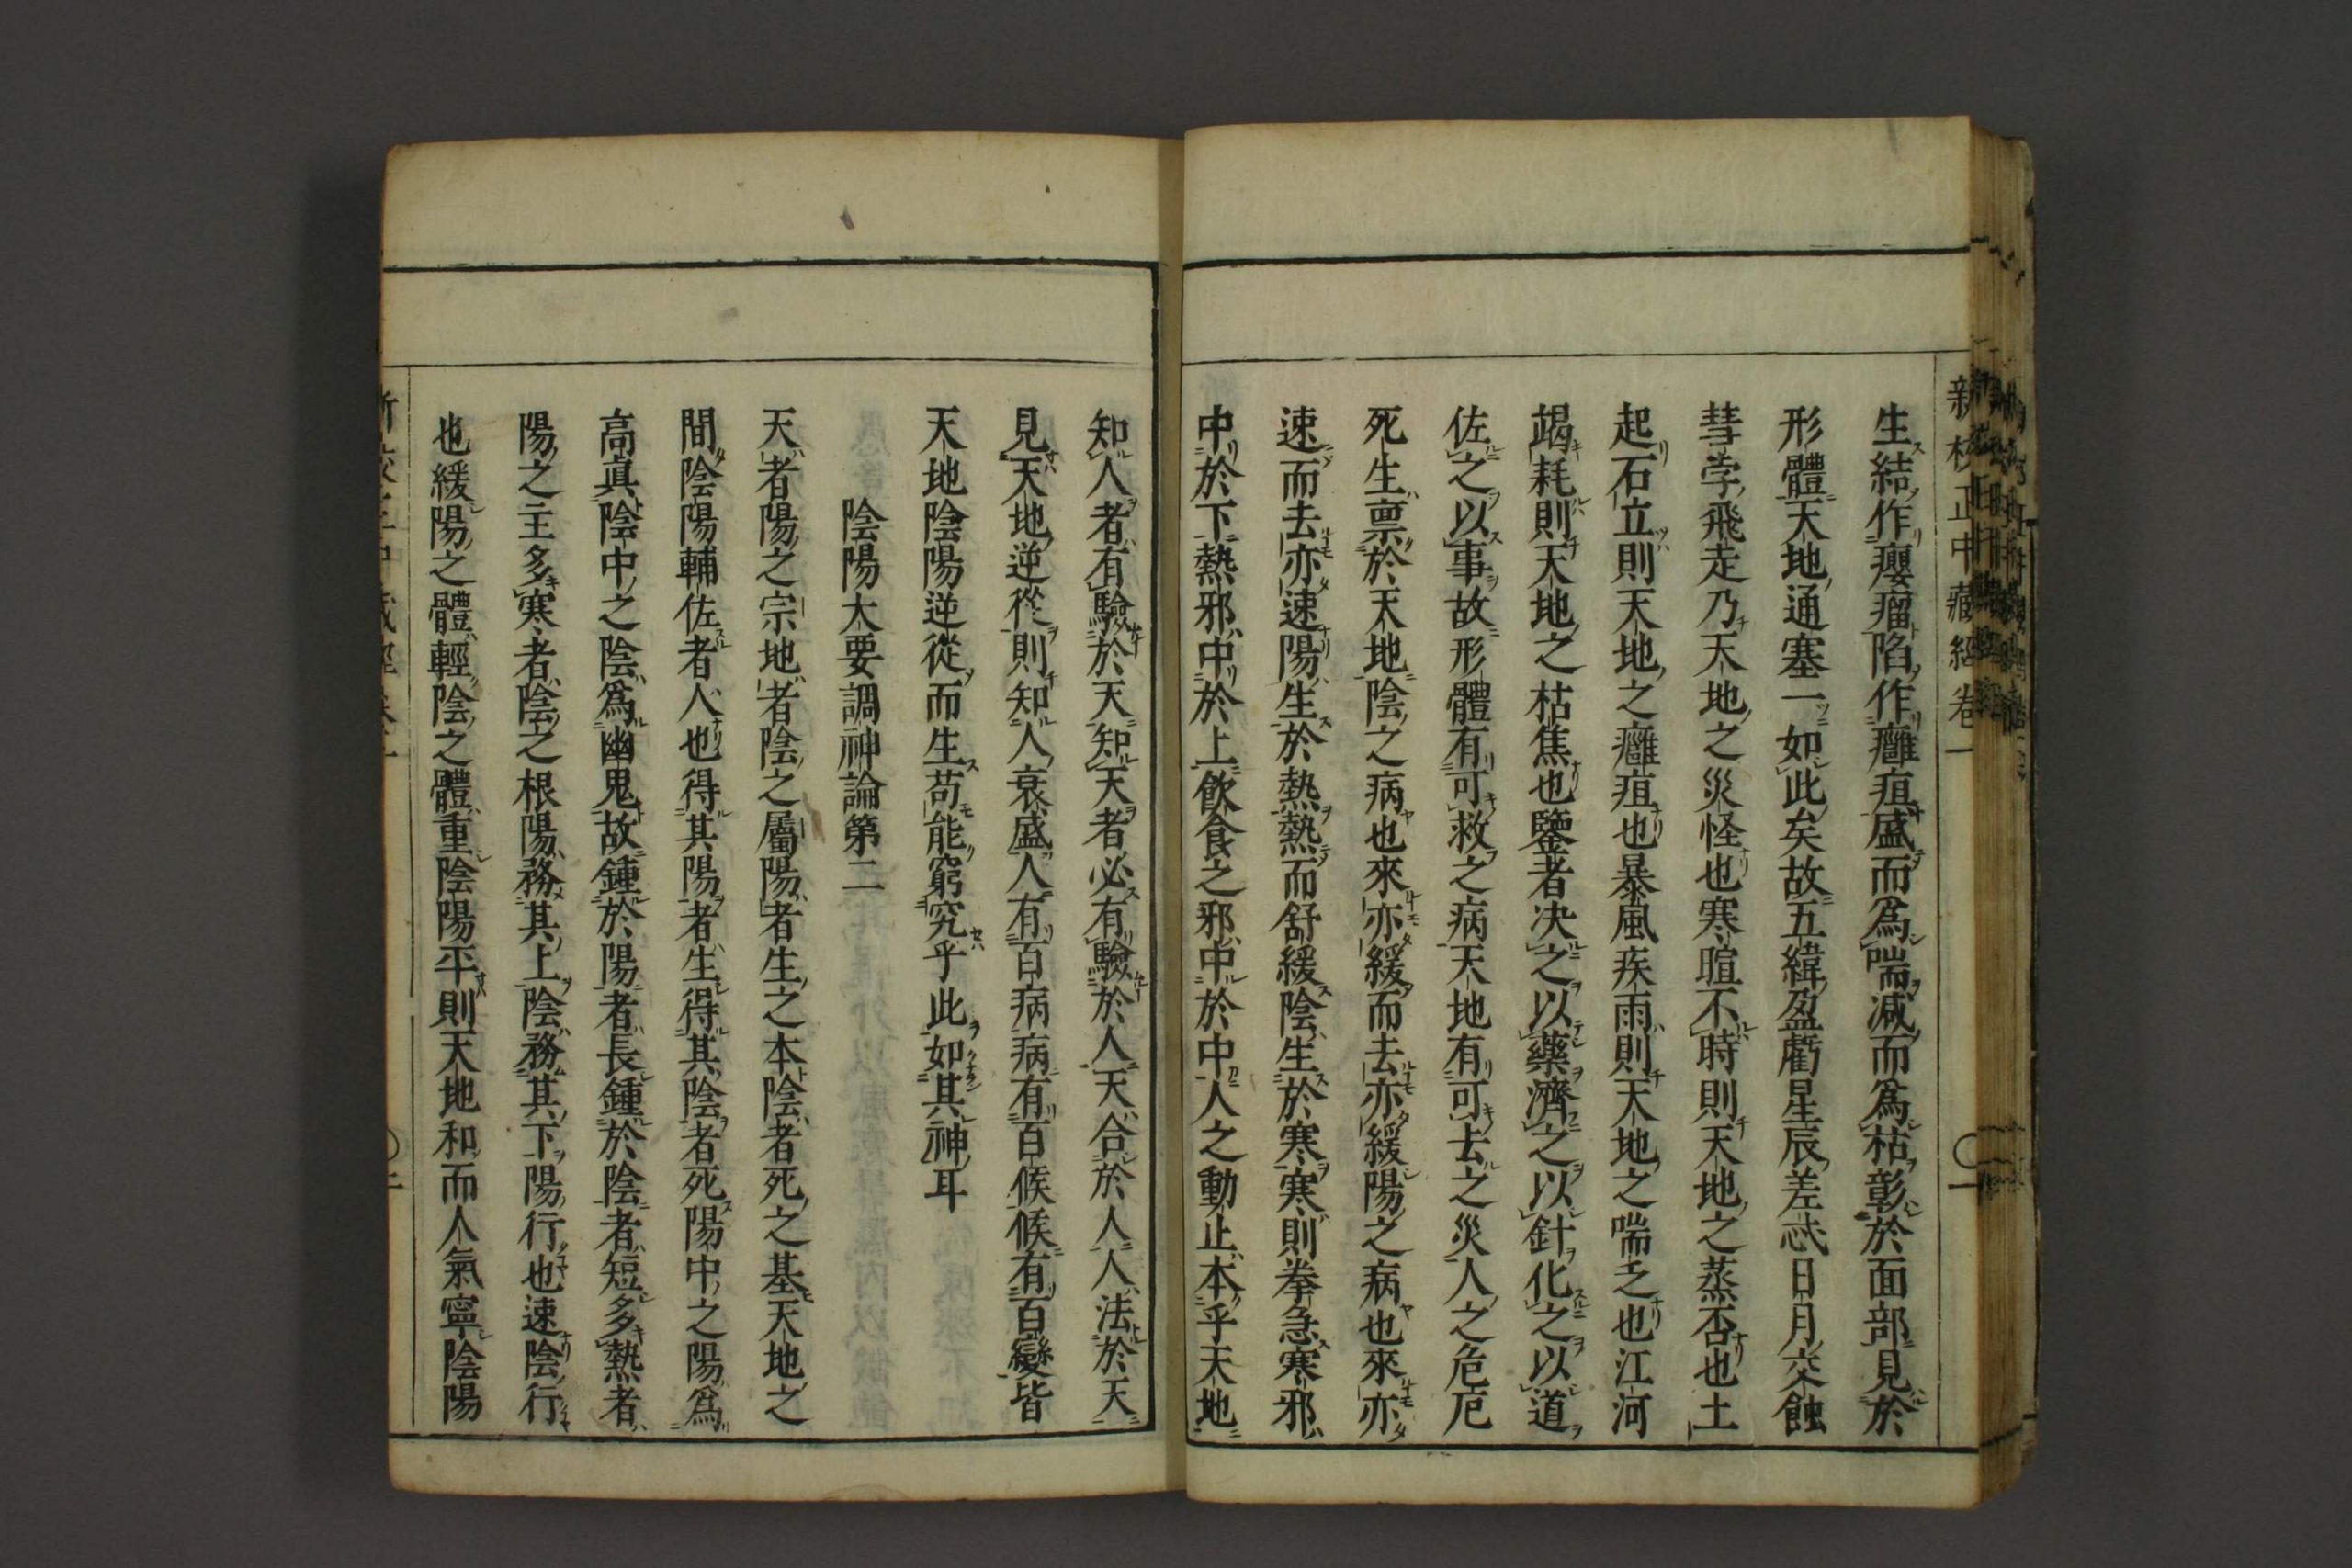 新校正中藏經卷一
〇一
生結作癭瘤陷作癰疽盛而爲喘減而爲枯彰於面部見於
形體天地通塞一如此矣故五緯盈虧星辰差忒日月交蝕
彗孛飛走乃天地之災怪也寒暄不時則天地之蒸否也土
起石立則天地之癰疽也暴風疾雨則天地之喘乏也江河
竭耗則天地之枯焦也鑒者決之以藥濟之以針化之以道
佐之以事故形體有可救之病天地有可去之災人之危厄
死生稟於天地陰之病也來亦緩而去亦緩陽之病也來亦
速而去亦速陽生於熱熱而舒緩陰生於寒寒則拳急寒邪
中於下熱邪中於上飲食之邪中於中人之動止本乎天地
知人者有驗於天知天者必有驗於人天合於人人法於天
見天地逆從則知人衰盛人有百病病有百候候有百變皆
天地陰陽逆從而生苟能窮究乎此如其神耳
陰陽大要調神論第二
天者陽之宗地者陰之屬陽者生之本陰者死之基天地之
間陰陽輔佐者人也得其陽者生得其陰者死陽中之陽爲
高眞陰中之陰爲幽鬼故鍾於陽者長鍾於陰者短多熱者
陽之主多寒者陰之根陽務其上陰務其下陽行也速陰行
也緩陽之體輕陰之體重陰陽平則天地和而人氣寧陰陽